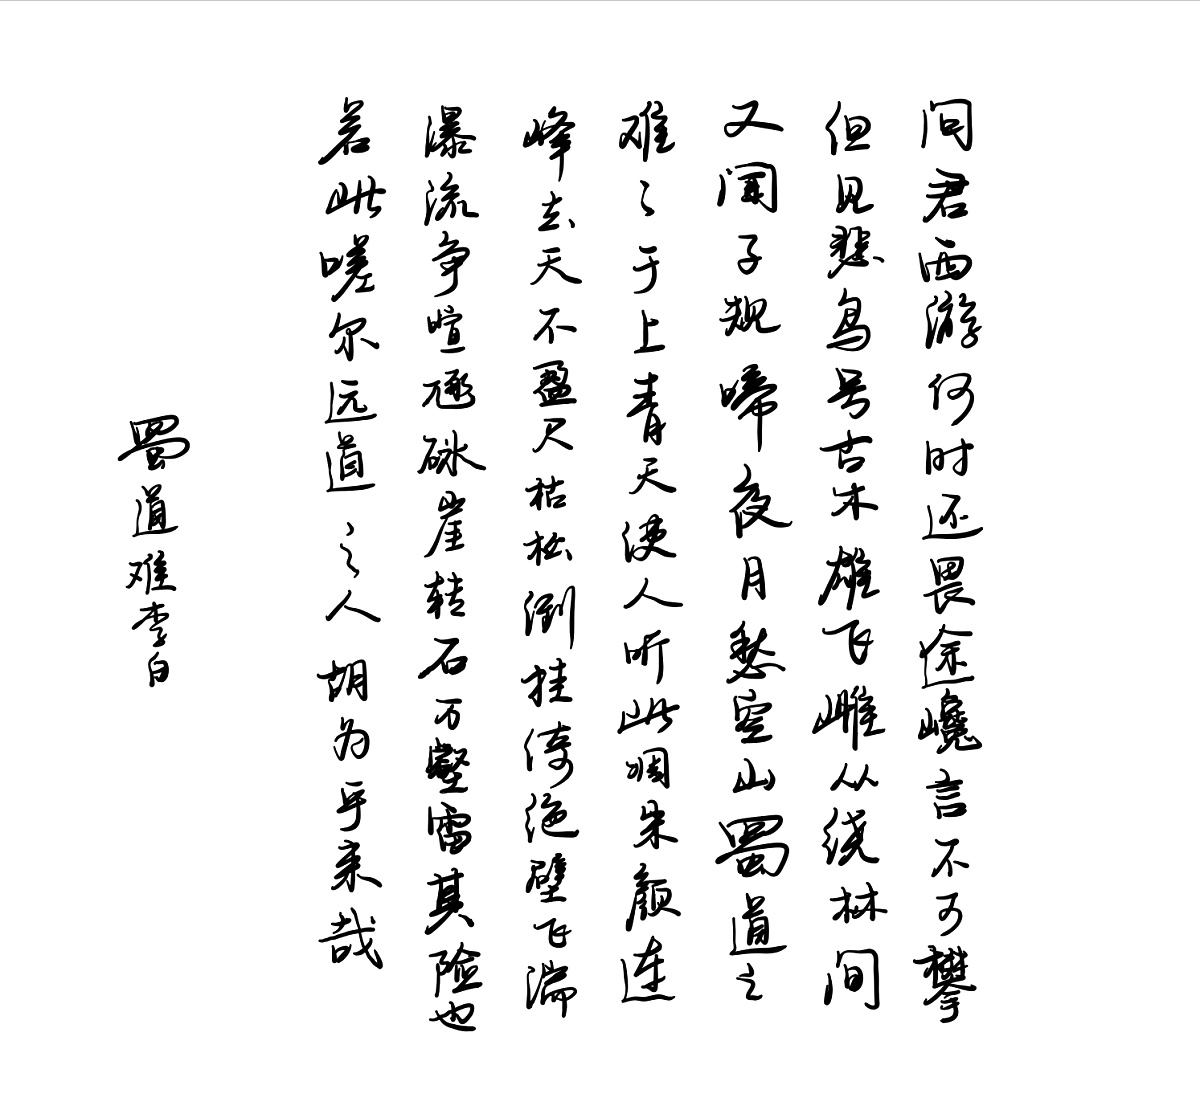 问君西游何时还畏途巉言不可攀
但见悲鸟号古木雄飞雌从绕林间
又闻子规啼夜月愁空山蜀道之
难之于上青天使人听此凋朱颜连
峰去天不盈尺枯松倒挂倚绝壁飞湍
瀑流争喧豗砯崖转石万壑雷其险也
若此嗟尔远道之人胡为乎来哉
蜀道难李白